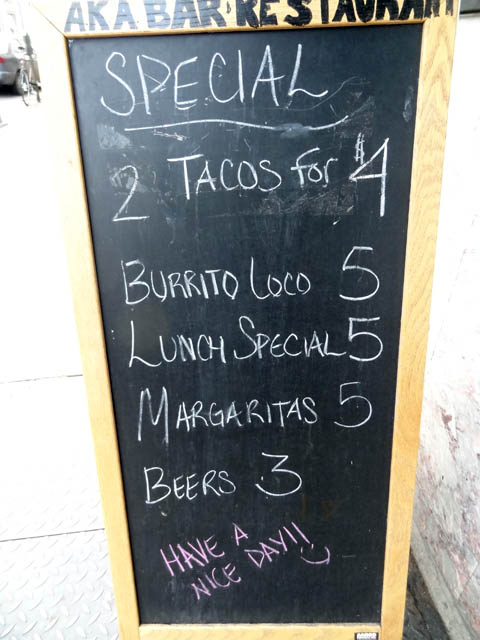 AKA BAR·RESTAURANT
SPECIAL
2 TACOS for $4
BURRITO LOCO 5
LUNCH SPECIAL 5
MARGARITAS 5
BEERS 3
HAVE A
NICE DAY!!